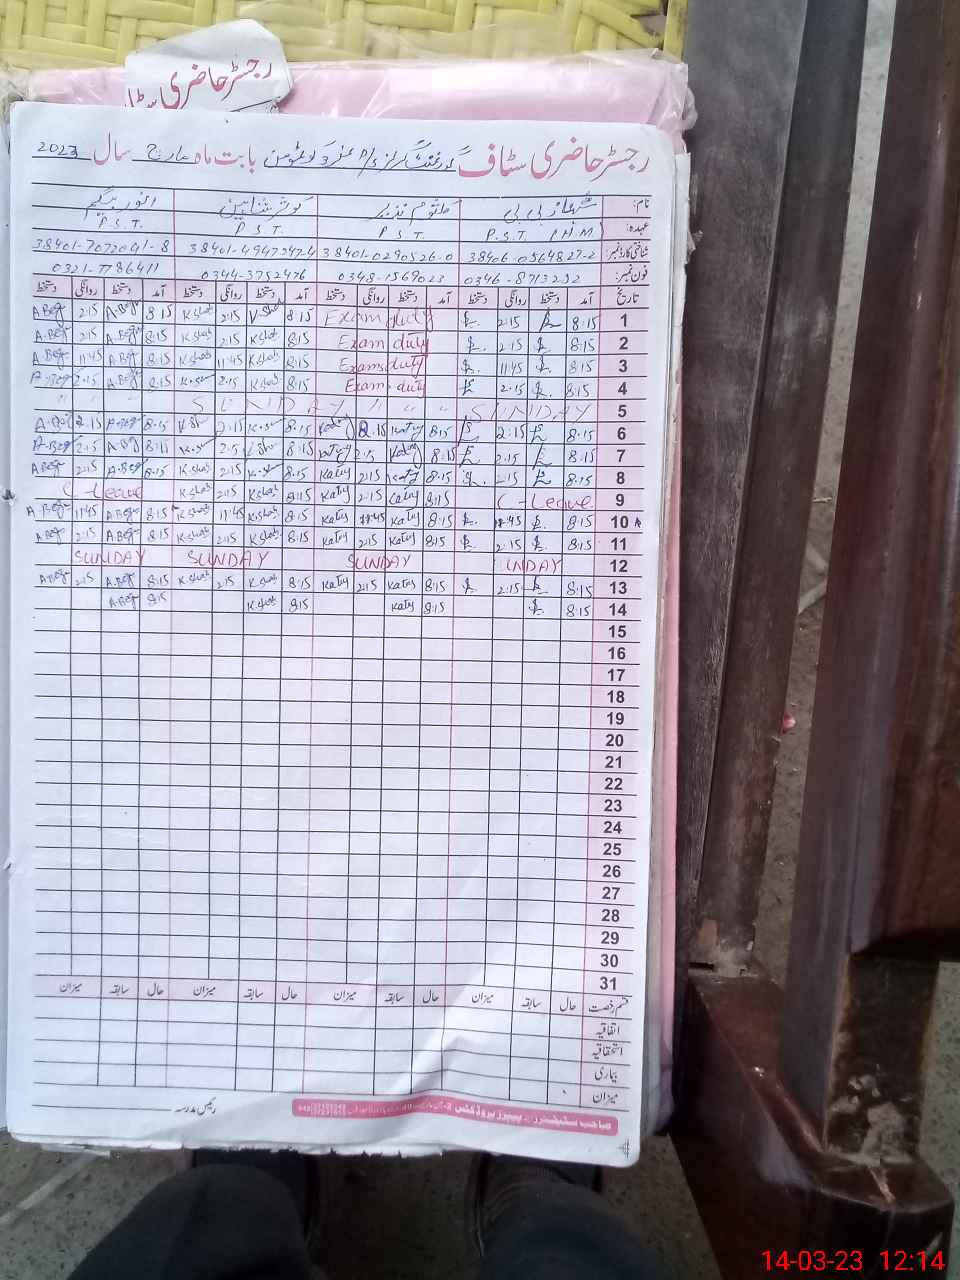 رجسٹر حاضری سٹاف
رجسٹر حاضری سٹاف گورنمنٹ گرلز بابت ماہ مارچ سال 2023
نام: شہناز بی بی کلثوم نذیر کوثر شاہین انور بیگم
عہدہ: P.S.T. P.S.T. P.S.T. P.S.T.
شناختی کارڈ نمبر: 38406-0564827-2 38401-0290526-0 38401-4947347-4 38401-7072041-8
فون نمبر: 0346-8713232 0348-1569023 0344-3752476 0321-7786411
تاریخ آمد دستخط روانگی دستخط آمد دستخط روانگی دستخط آمد دستخط روانگی دستخط آمد دستخط روانگی دستخط
1 8:15 2:15 Exam duty 8:15 K.shah 2:15 K.shah 8:15 A.Beg 2:15 A.Beg
2 8:15 2:15 Exam duty 8:15 K.shah 2:15 K.shah 8:15 A.Beg 2:15 A.Beg
3 8:15 11:45 Exam duty 8:15 K.shah 11:45 K.shah 8:15 A.Beg 11:45 A.Beg
4 8:15 2:15 Exam duty 8:15 K.shah 2:15 8:15 A.Beg 2:15 A.Beg
5 SUNDAY " " " SUNDAY " "
6 8:15 2:15 8:15 Katy 2:15 Katy 8:15 2:15 8:15 A.Beg 2:15
7 8:15 2:15 8:15 Katy 2:15 Katy 8:15 2:15 8:15 A.Beg 2:15 A.Beg
8 8:15 2:15 8:15 Katy 2:15 Katy 8:15 2:15 K.shah 8:15 A.Beg 2:15 A.Beg
9 C-Leave 8:15 Katy 2:15 Katy 8:15 K.shah 2:15 K.shah C-Leave
10 8:15 11:45 8:15 Katy 11:45 Katy 8:15 K.shah 11:45 K.shah 8:15 A.Beg 11:45 A.Beg
11 8:15 2:15 8:15 Katy 2:15 Katy 8:15 K.shah 2:15 K.shah 8:15 A.Beg 2:15 A.Beg
12 UNDAY SUNDAY SUNDAY SUNDAY
13 8:15 2:15 8:15 Katy 2:15 Katy 8:15 K.shah 2:15 K.shah 8:15 A.Beg 2:15 A.Beg
14 8:15 8:15 Katy 8:15 K.shah 8:15 A.Beg
15
16
17
18
19
20
21
22
23
24
25
26
27
28
29
30
31
قسم رخصت حال سابقہ میزان حال سابقہ میزان حال سابقہ میزان حال سابقہ میزان
اتفاقیہ
استحقاقیہ
بیماری
میزان
رئیس مدرسہ
صاحب سٹیشنرز اینڈ پیپرز پروڈکٹس
14-03-23 12:14